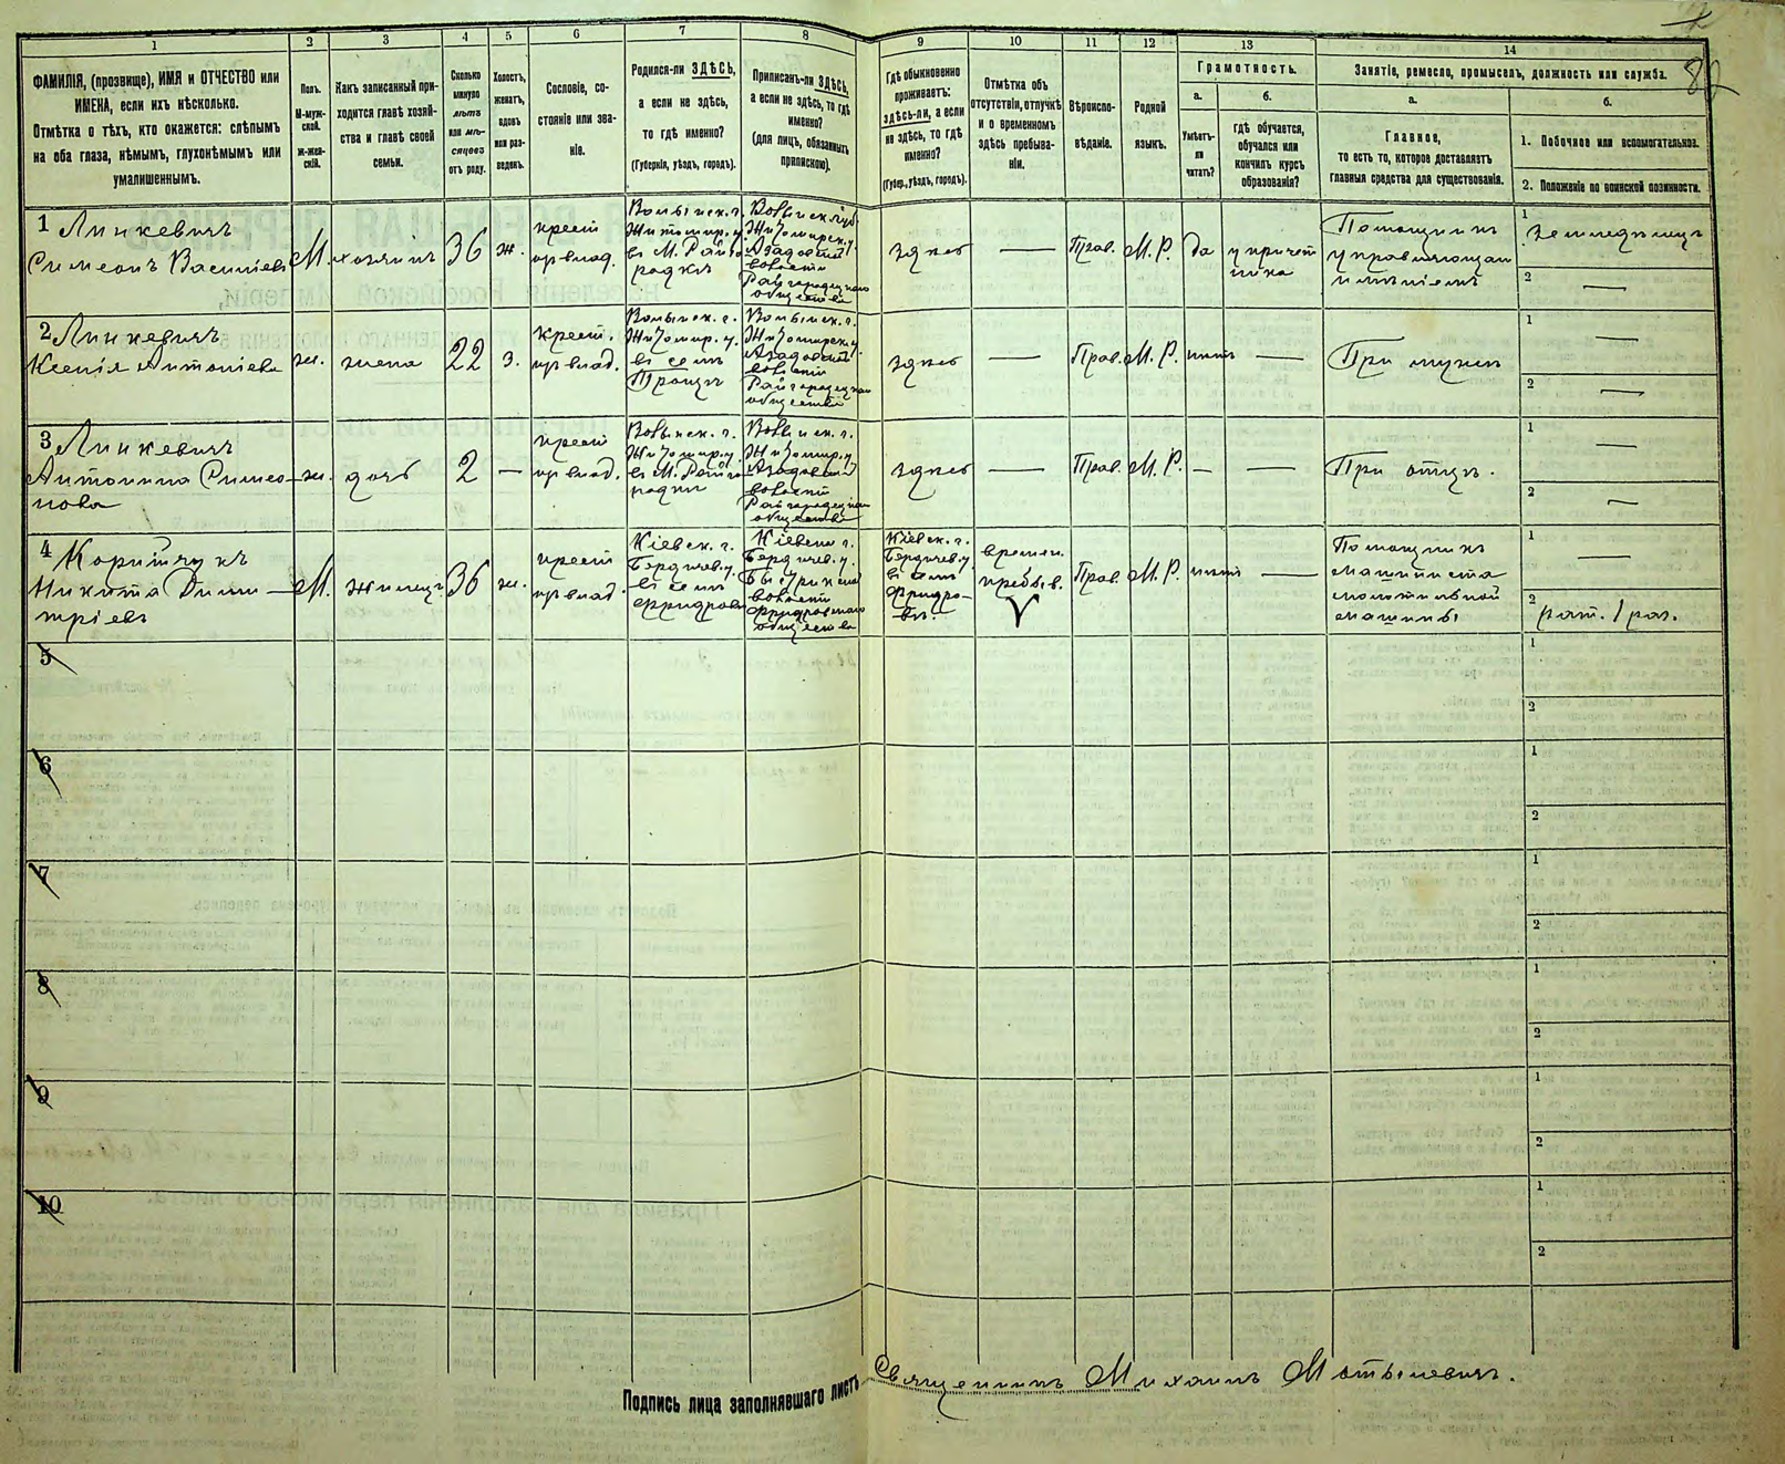 1
2
3
4
5
6
7
8
9
10
11
12
13
14
82
ФАМИЛІЯ, (прозвище), ИМЯ и ОТЧЕСТВО или
ИМЕНА, если ихъ нѣсколько.
Отмѣтка о тѣхъ, кто окажется: слѣпымъ
на оба глаза, нѣмымъ, глухонѣмымъ или
умалишеннымъ.
Полъ.
М-муж-
ской.
Ж-жен-
скій.
Какъ записанный при-
ходится главѣ хозяй-
ства и главѣ своей
семьи.
Сколько
минуло
лѣтъ
или мѣ-
сяцевъ
отъ роду.
Холостъ,
женатъ,
вдовъ
или раз-
веденъ.
Сословіе, со-
стояніе или зва-
ніе.
Родился-ли ЗДѢСЬ,
а если не здѣсь,
то гдѣ именно?
(Губернія, уѣздъ, городъ).
Приписанъ-ли ЗДѢСЬ,
а если не здѣсь, то гдѣ
именно?
(для лицъ, обязанныхъ
припискою).
Гдѣ обыкновенно
проживаетъ:
здѣсь-ли, а если
не здѣсь, то гдѣ
именно?
(Губер., уѣздъ, городъ).
Отмѣтка объ
отсутствіи, отлучкѣ
и о временномъ
здѣсь пребыва-
ніи.
Вѣроиспо-
вѣданіе.
Родной
языкъ.
Грамотность.
а.
Умѣетъ-
ли
читать?
б.
гдѣ обучается,
обучался или
кончилъ курсъ
образованія?
Занятіе, ремесло, промыселъ, должность или служба.
а.
Главное,
то есть то, которое доставляетъ
главныя средства для существованія.
б.
1. Побочное или вспомогательное.
2. Положеніе по воинской повинности.
1 Линкевичъ
Симеонъ Васильевъ
М.
хозяинъ
36
ж.
крест
ѵр влад.
Волынск. г.
Житомир. у.
въ М. Райго
родкѣ
Волынск губ
Житомирск. у.
волости
Райгородецкаго
общества
здѣсь
—
Прав.
М. Р.
да
у причет
ника
Помощникъ
управляющаго
имѣніемъ
1
Земледѣлецъ
2
—
2 Линкевичъ
Ксенія Антоніева
ж.
жена
22
з.
крест.
Волынск. г.
Житомир. у.
въ селѣ
Троцкъ
Волынск. г.
Житомирск у.
волости
Райгородецкаго
общества
здѣсь
—
Прав.
М. Р.
нѣтъ
—
При мужѣ
1
—
2
—
3 Линкевичъ
Антонина Симео-
нова
ж.
дочь
2
—
крест
Волынск. г.
Житомир. у.
въ М. Райго
родкѣ
Волынск. г.
Житомир. у
волости
Райгородецкаго
общества
здѣсь
—
Прав.
М. Р.
—
—
При отцѣ.
1
—
2
—
4
Никита Дими-
тріевъ
М.
жилецъ
36
ж.
крест
Кіевск. г.
Бердичев. у.
въ селѣ
Фридров
Кіевск г.
Бердичев. у.
волости
общества
Кіевск. г.
Бердичев. у
въ селѣ
Фридро-
вѣ.
времен.
пребыв.
Прав.
М. Р.
нѣтъ
—
Помощникъ
машиниста
молотильной
машины
1
—
2
рат. 1 раз.
5
1
2
6
1
2
7
1
2
8
1
2
9
1
2
10
1
2
Подпись лица заполнявшаго листъ Священникъ Михаилъ